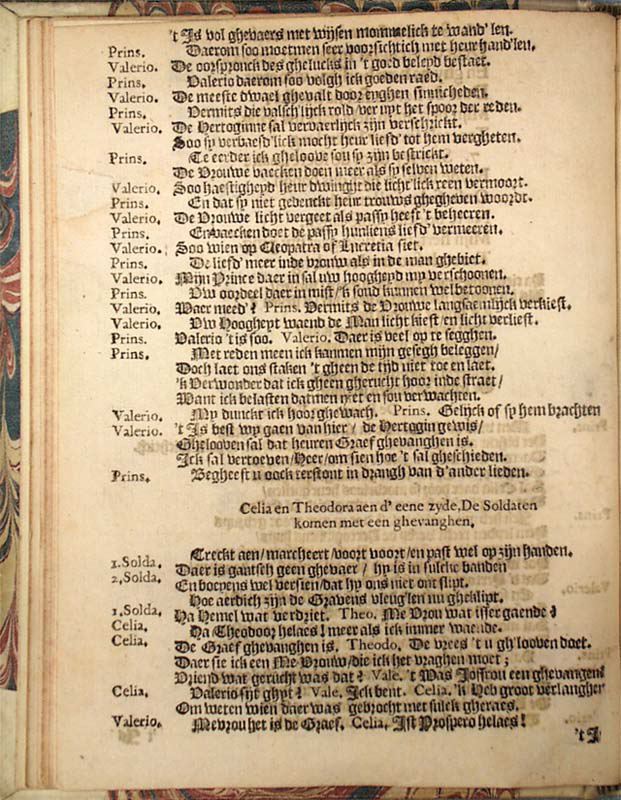 't Is vol ghevaers met wijsen mommelick te wand'len.
Prins. Daerom soo moetmen seer voorsichtich met heur hand'len.
Valerio. De oorspronck des ghelucks in 't goed beleyd bestaet.
Prins. Valerio daerom soo volgh ick goeden raed.
Valerio. De meeste dwael ghevalt door eyghen sinnicheden.
Prins. Vermits die valschlijck rold ver uyt het spoor der reden.
Valerio. De Hertoginne sal vervaerlijck zijn verschrickt.
Soo sy verbaesd'lick mocht heur liefd' tot hem vergheten.
Prins. Te eerder ick gheloove sou sy zijn bestrickt.
De Vrouwe vaecken doen meer als sy selven weten.
Valerio. Soo haestigheyd heur dwinght die licht'lick reen vermoort.
Prins. En dat sy niet gedenckt heur trouws ghegheven woordt.
Valerio. De Vrouwe licht vergeet als passy heeft 't beheeren.
Prins. En vaecken doet de passy hunliens liefd' vermeeren.
Valerio. Soo wien op Cleopatra of Lucretia siet.
Prins. De liefd' meer inde vrouw als in de man ghebiet.
Valerio. Mijn Prince daer in sal uw hoogheyd my verschoonen.
Prins. Uw oordeel daer in mist/'k soud kunnen wel betoonen.
Valerio. Waer meed'? Prins. Vermits de Vrouwe langsaemlijck verkiest.
Valerio. Uw Hoogheyt waend de Man licht kiest/en licht verliest.
Prins. Valerio 'tis soo. Valerio. Daer is veel op te segghen.
Prins. Met reden meen ick kanmen mijn gesegh beleggen/
Doch laet ons staken 't gheen de tijd niet toe en laet.
'k Verwonder dat ick gheen gherucht hoor inde straet/
Want ick belasten datmen niet en sou verwachten.
Valerio. My dunckt ick hoor ghewach. Prins. Gelijck of sy hem brachten
Valerio. 't Is best wy gaen van hier/ de Hertogin gewis/
Ghelooven sal dat heuren Graef ghevanghen is.
Ick sal vertoeven/Heer/om sien hoe 't sal gheschieden.
Prins. Begheeft u oock terstont in drangh van d'ander lieden.
Celia en Theodora aen d' eene zyde. De Soldaten
komen met een ghevanghen.
1. Solda. Treckt aen/marcheert/voort voort/en past wel op zijn handen.
2. Solda. Daer is gantsch geen ghevaer / hy is in sulcke banden
En boeyens wel versien/dat hy ons niet ont slipt.
1. Solda. Hoe aerdich zijn de Gravens vleug'len nu gheklipt.
Celia. Ha Hemel wat verdriet. Theo. Me Vrou wat isser gaende?
Celia. Ha Theodoor helaes! meer als ick immer waende.
De Graef ghevanghen is. Theodo. De vrees 't u gh'looven doet.
Daer sie ick een Me Vrouw/die ick het vraghen moet;
Vriend wat gerucht was dat? Vale. 't Was Joffrou een ghevangen?
Celia. Valerio sijt ghy't? Vale. Ick bent. Celia. 'k Heb groot verlanghen
Om weten wien daer was gebrocht met sulck gheraes.
Valerio. Mevrou het is de Graef. Celia. Ist Prospero helaes!
't I